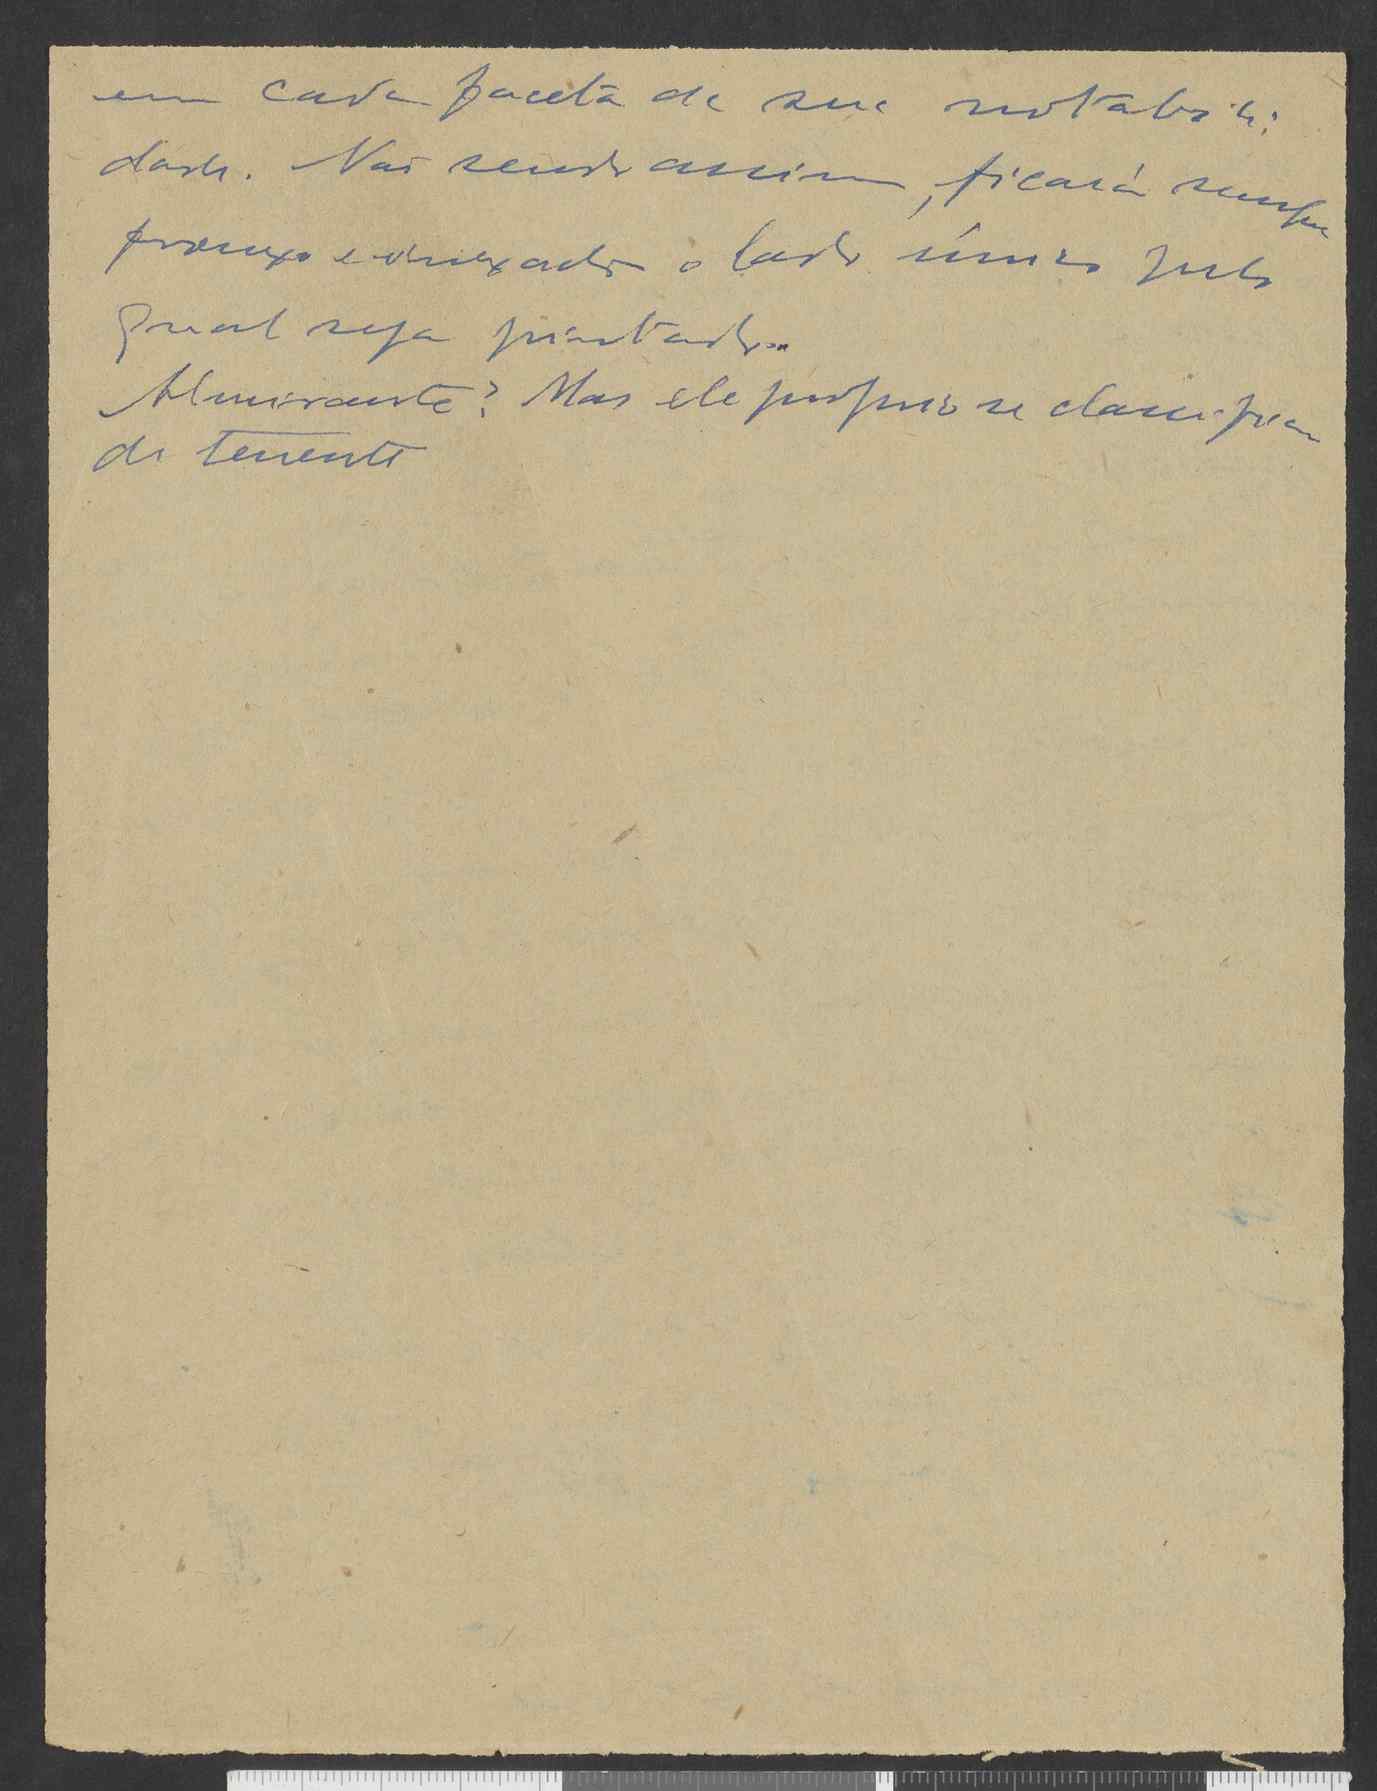 em cada faceta de sua notabili-
dade. Não sendo assim, ficará sempre
frouxo e o lado único pelo
qual seja pintado..
Almirante? Mas ele proprio se classifica
de tenente